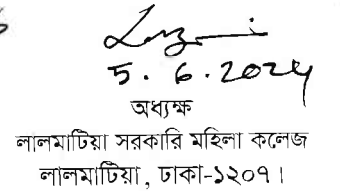 5.6.2024
অধ্যক্ষ
লালমাটিয়া সরকারি মহিলা কলেজ
লালমাটিয়া, ঢাকা-১২০৭।